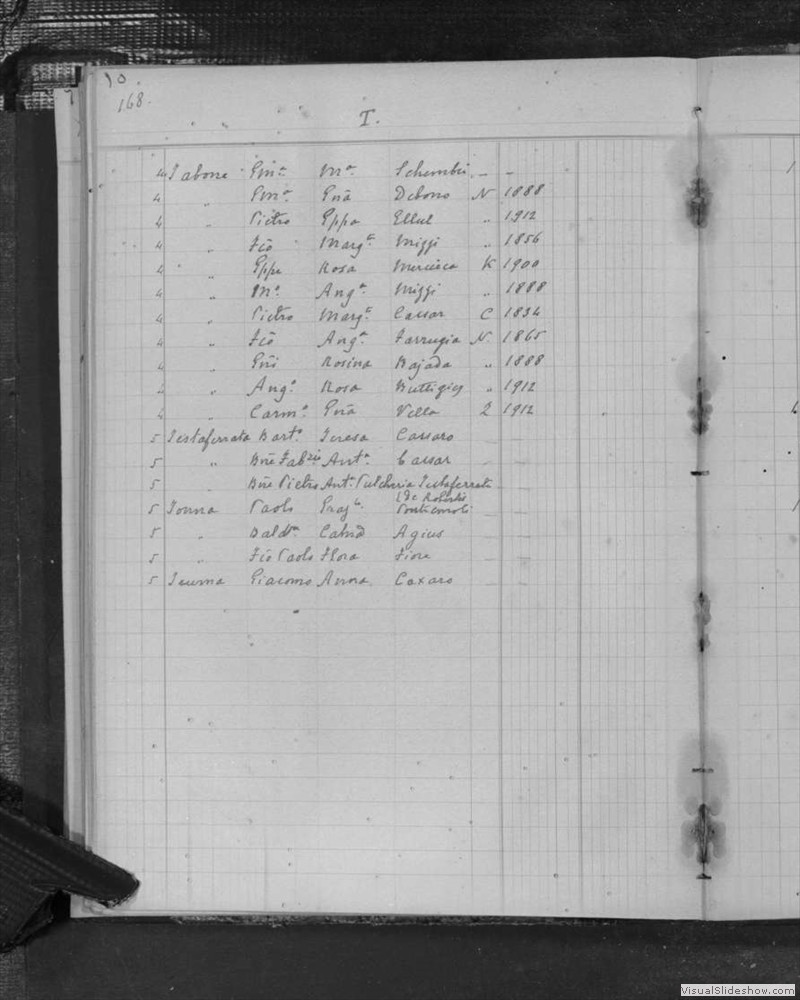 10.
168.
T.
4 Tabone Gmᵃ Mᵃ Schembri - -
4 " Gmᵃ Gnã Debono N 1888
4 " Pietro Gppa Ellul " 1912
4 " Fcõ Margᵗᵃ Mizzi " 1856
4 " Gppe Rosa Mercieca K 1900
4 " Mᵒ Angᵃ Mizzi " 1888
4 " Pietro Margᵗᵃ Cassar C 1834
4 " Fcõ Angᵃ Farrugia N 1865
4 " Gñi Rosina Bajada " 1888
4 " Angᵒ Rosa Buttigieg " 1912
4 " Carmᵒ Gnã Vella Z 1912
5 Testaferrata Bartᵒ Teresa Cassaro
5 " Bne Fabzio Antᵃ Cassar
5 Bne Pietro Antᵒ Pulcheria Testaferrata
5 Tonna Paolo Grazᵃ
5 " Baldᵉ Catnã Agius
5 " Fcõ Paolo Flora Fiore
5 Teuma Giacomo Anna Caxaro
VisualSlideshow.com